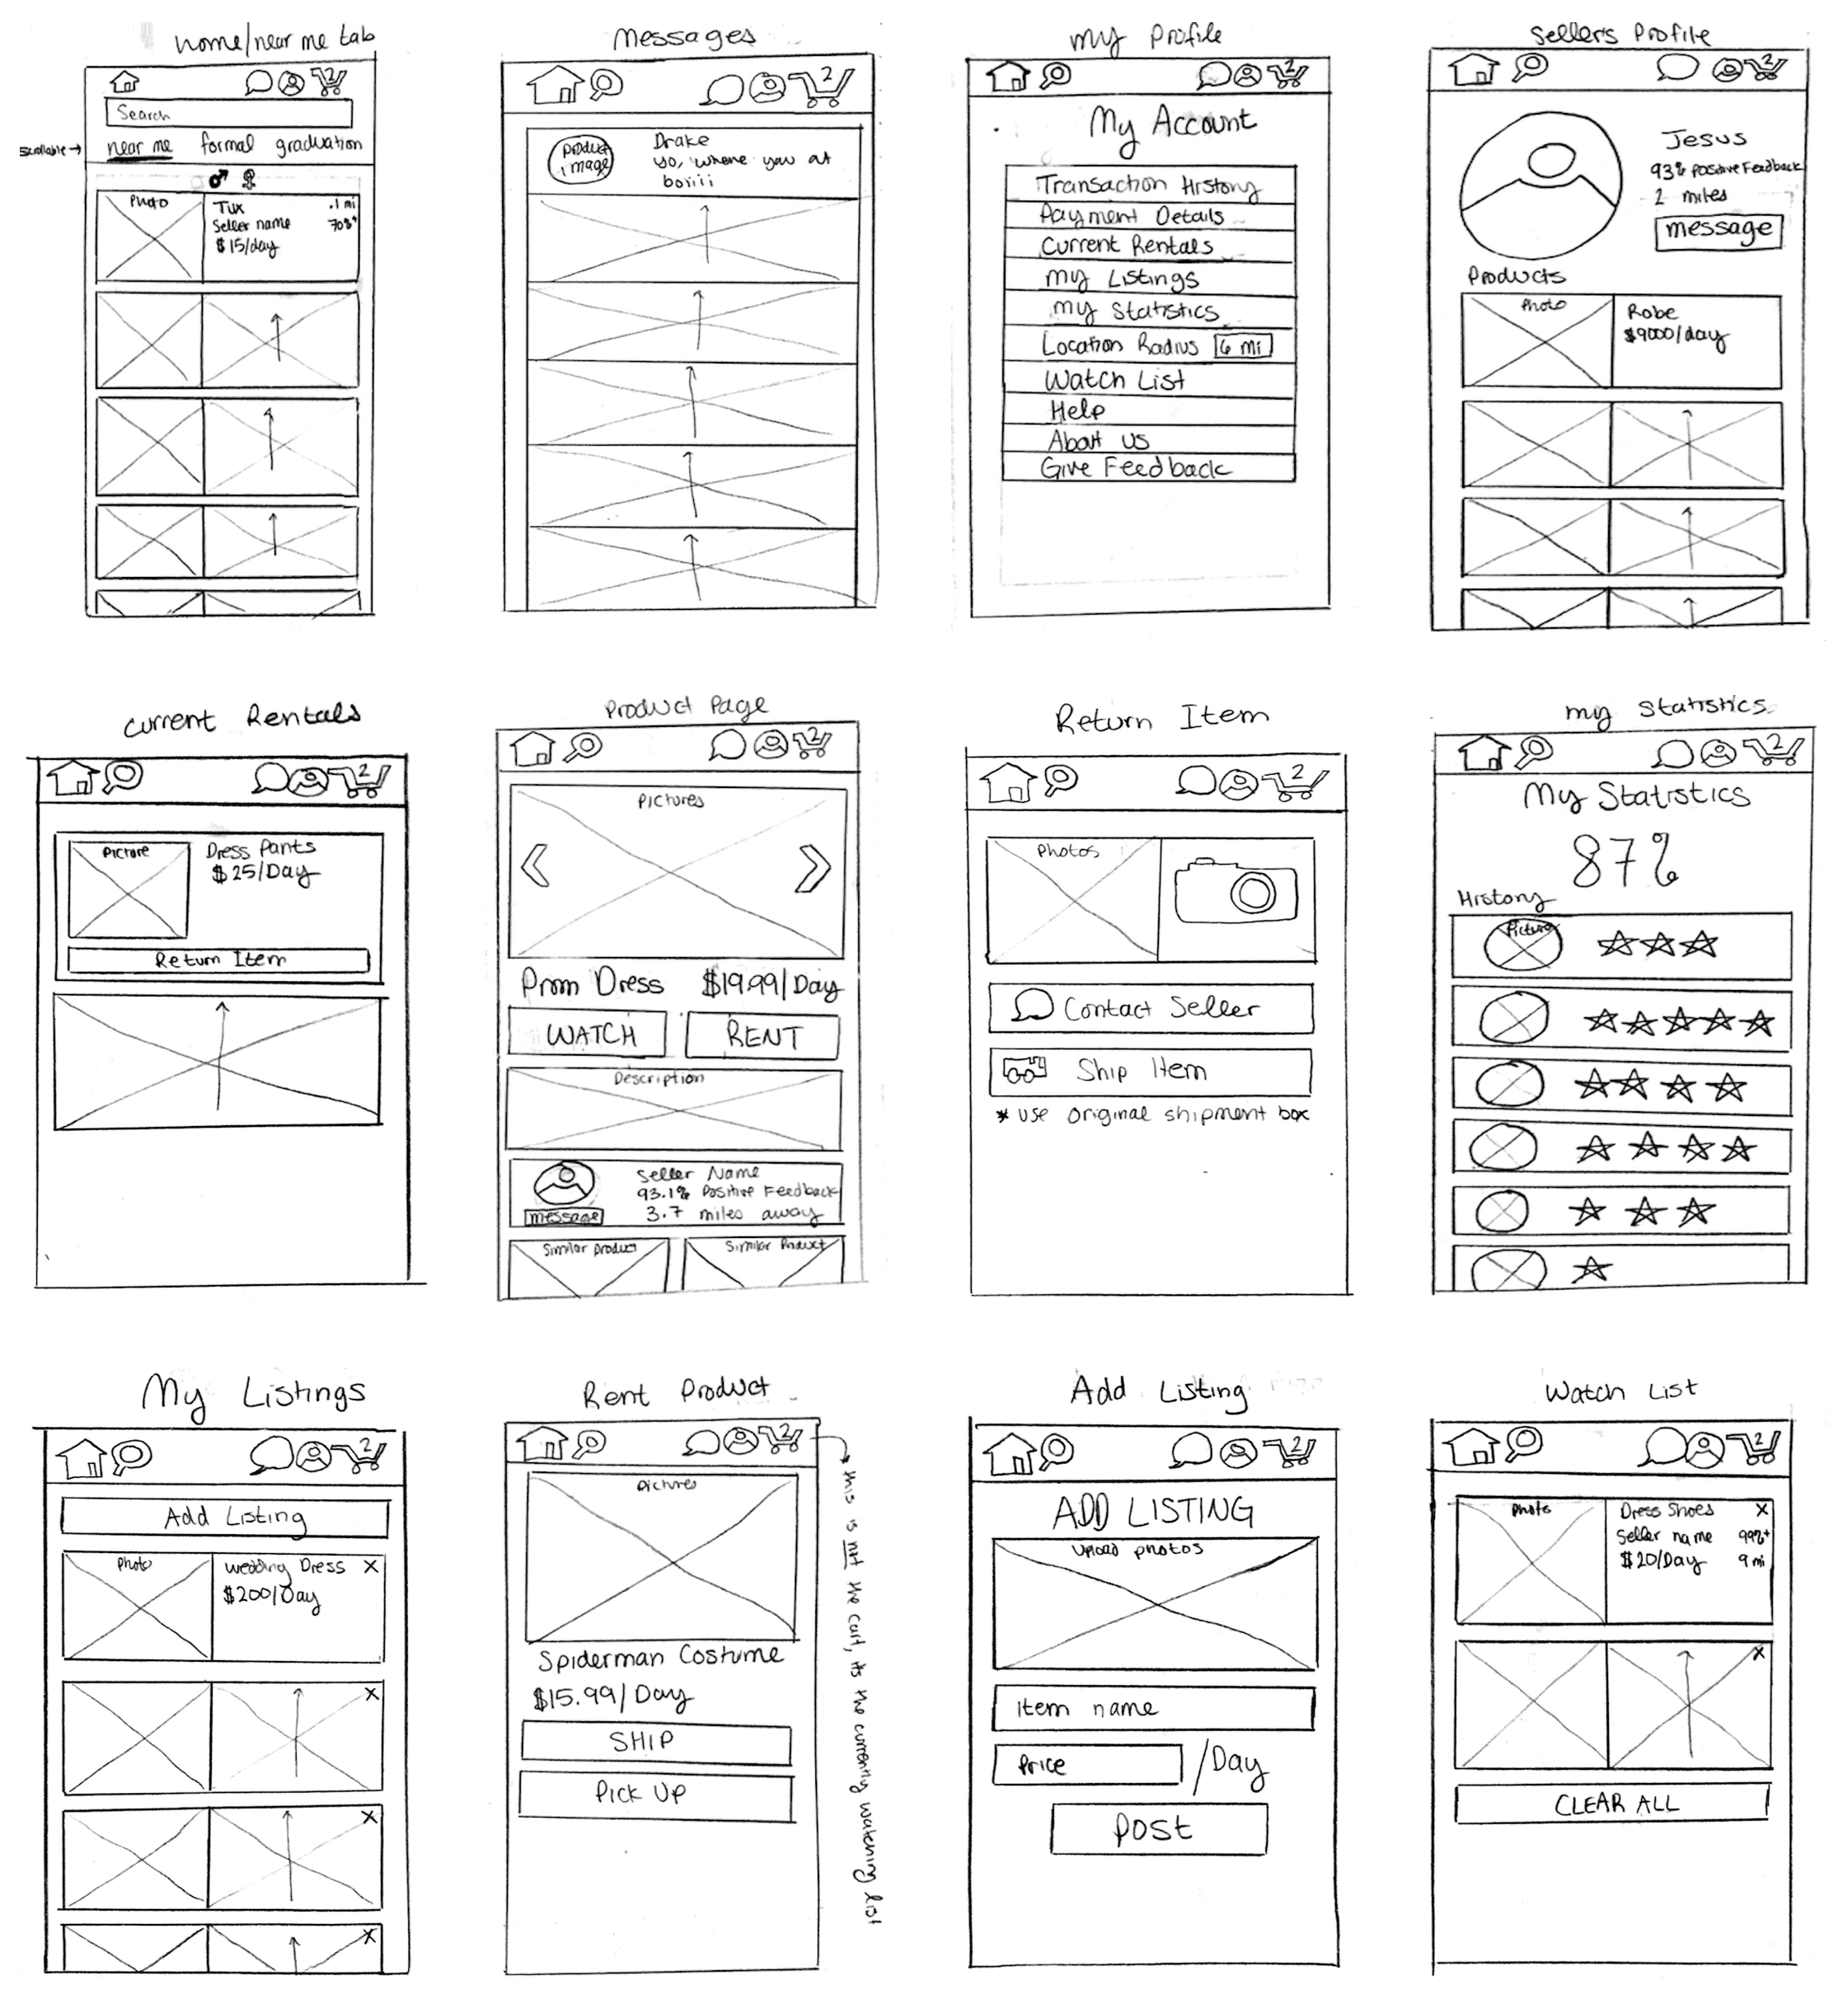 home/near me tab
2
Search
scrollable →
near me formal graduation
Photo
Tux .1 mi
Seller name 70%+
$15/day
Messages
2
product image
Drake
yo, where you at
boiiii
My Profile
2
My Account
Transaction History
Payment Details
Current Rentals
My Listings
My Statistics
Location Radius 6 mi
Watch List
Help
About Us
Give Feedback
Sellers Profile
2
Jesus
93% Positive Feedback
2 miles
message
Products
Photo
Robe
$9000/day
Current Rentals
2
Picture
Dress Pants
$25/Day
Return Item
Product Page
2
Pictures
Prom Dress $19.99/Day
WATCH RENT
Description
Seller Name
93.1% Positive Feedback
message
3.7 miles away
Similar product Similar Product
Return Item
2
Photos
Contact Seller
Ship Item
* use original shipment box
My Statistics
2
My Statistics
87%
History
Picture
My Listings
2
Add Listing
Photo
Wedding Dress X
$200/Day
X
X
X
Rent Product
2
this is not the cart, its the currently watching list
Pictures
Spiderman Costume
$15.99/Day
SHIP
Pick UP
Add Listing
2
ADD LISTING
Upload photos
Item name
Price /Day
Post
Watch List
2
Photo
Dress Shoes X
Seller name 99%+
$20/Day 9 mi
X
CLEAR ALL